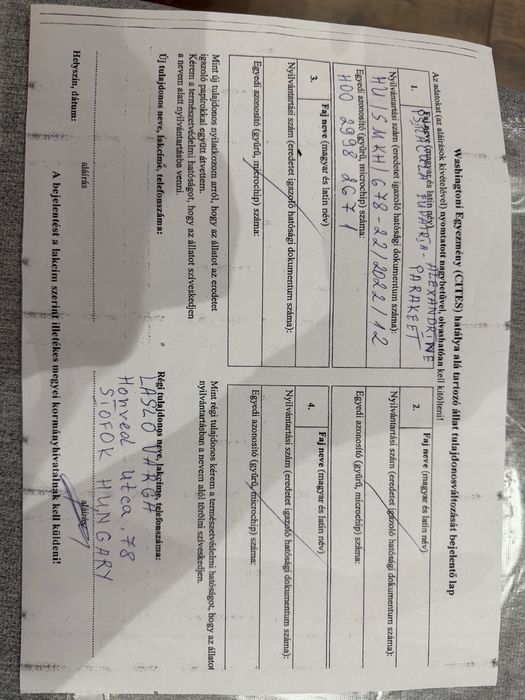 Washingtoni Egyezmény (CITES) hatálya alá tartozó állat tulajdonosváltozását bejelentő lap
Az adatokat (az aláírások kivételével) nyomtatott nagybetűvel, olvashatóan kell kitölteni!
1.
Faj neve (magyar és latin név)
PSITACULA EUPATRIA - ALEXANDRINE PARAKEET
Nyilvántartási szám (eredetet igazoló hatósági dokumentum száma):
HU/SMKH/678-22/2022/12
Egyedi azonosító (gyűrű, microchip) száma:
HOO 2998 2G71
2.
Faj neve (magyar és latin név)
Nyilvántartási szám (eredetet igazoló hatósági dokumentum száma):
Egyedi azonosító (gyűrű, microchip) száma:
3.
Faj neve (magyar és latin név)
Nyilvántartási szám (eredetet igazoló hatósági dokumentum száma):
Egyedi azonosító (gyűrű, microchip) száma:
4.
Faj neve (magyar és latin név)
Nyilvántartási szám (eredetet igazoló hatósági dokumentum száma):
Egyedi azonosító (gyűrű, microchip) száma:
Mint új tulajdonos nyilatkozom arról, hogy az állatot az eredetet
igazoló papírokkal együtt átvettem.
Kérem a természetvédelmi hatóságot, hogy az állatot szíveskedjen
a nevem alatt nyilvántartásba venni.
Új tulajdonos neve, lakcíme, telefonszáma:
aláírás
Mint régi tulajdonos kérem a természetvédelmi hatóságot, hogy az állatot
nyilvántartásban a nevem alól törölni szíveskedjen.
Régi tulajdonos neve, lakcíme, telefonszáma:
LASZLO VARGA
Honved Utca, 78
SIOFOK HUNGARY
aláírás
A bejelentést a lakcím szerint illetékes megyei kormányhivatalnak kell küldeni!
Helyszín, dátum: